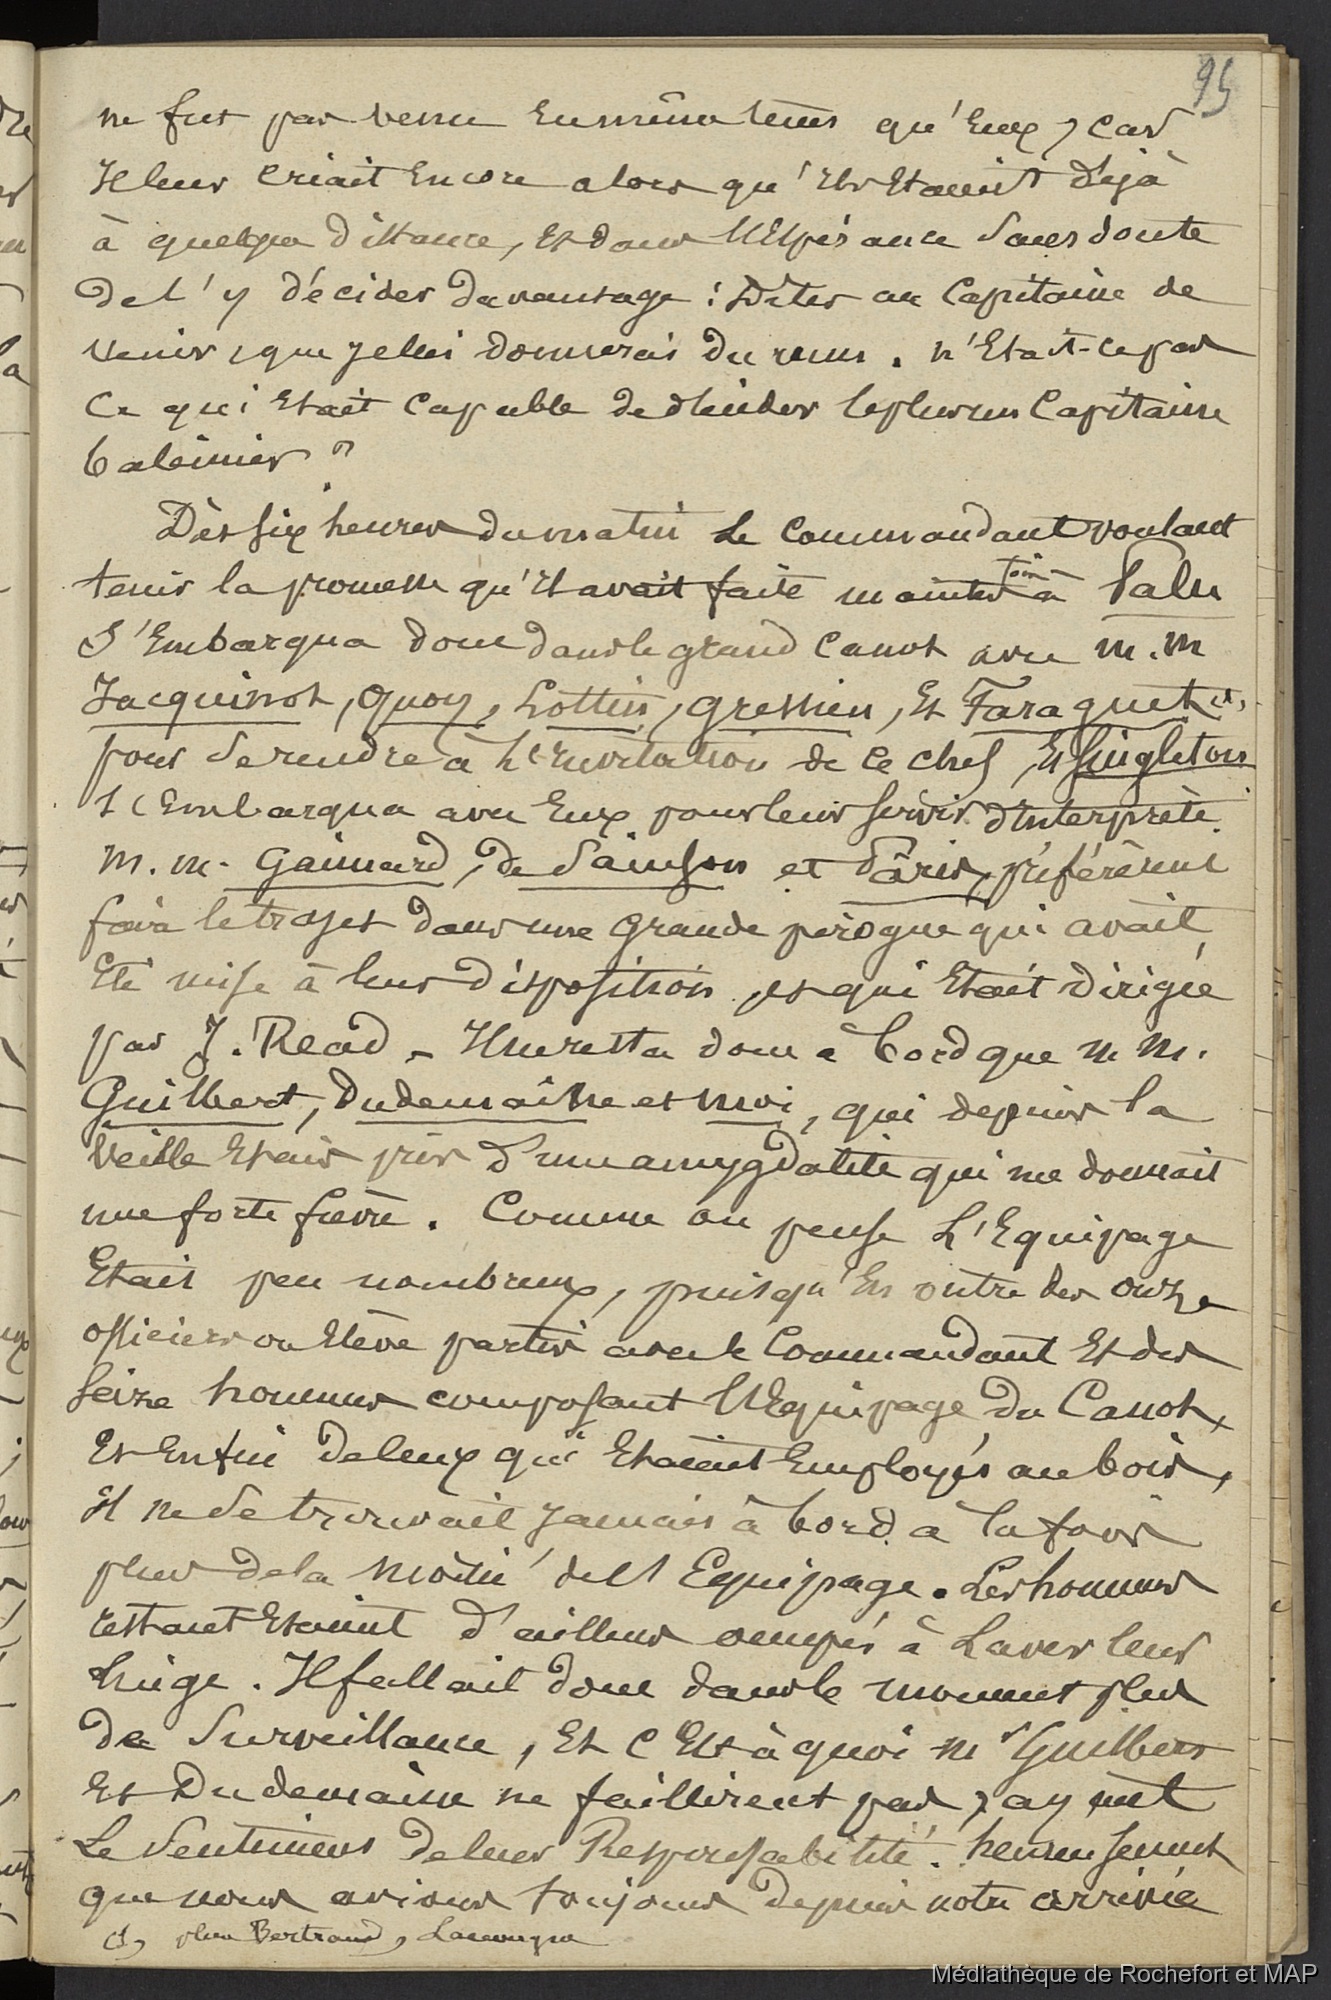 95
ne fut pas venu en même tems qu'Eux, car
Il leur criait Encore alors qu'ils Etaient déjà
à quelque distance, Et dans l'Espérance sans doute
de l'y décider davantage : Dites au Capitaine de
venir, que je lui donnerais du rum. n'Etait-ce pas
Ce qui Etait capable de décider le plus un Capitaine
baleinier ?
Dès six heures du matin le Commandant voulant
tenir la promesse qu'il avait faite maintes fois à Palu
S'Embarqua donc dans le grand canot avec m.m
Jacquinot, Quoy, Lottin, Gressien, Et Faraguet (1),
pour se rendre à l'invitation de ce chef, Et Singleton
s'Embarqua avec Eux pour leur servir d'interprète.
M.m. Gaimard, de Sainson et Pâris, préférèrent
faire le trajet dans une grande pirogue qui avait
Eté mise à leur disposition, et qui Etait dirigée
par J. Read - Il ne resta donc à bord que M M.
Guilbert, Dudemaine et moi, qui depuis la
Veille Etais pris d'une amygdalite qui me donnait
une forte fièvre. Comme on pense L'Equipage
Etait peu nombreux, puisqu'En outre des onze
officiers ou Elève partis avec le Commandant Et des
seize hommes composant l'Equipage du Canot,
Et Enfin de ceux qui Etaient Employés au bois,
il ne se trouvait jamais à bord à la fois
plus de la moitié de l'Equipage. Les hommes
restant Etaient d'ailleurs occupés à Laver leur
linge. Il fallait donc dans le moment plus
de Surveillance, Et c'Est à quoi Mr Guilbert
Et Dudemaine ne faillirent pas, ayant
Le Sentiment de leur Responsabilité. heureusement
que nous avions toujours depuis notre arrivée
(1) plus Bertrand, Lesson
Médiathèque de Rochefort et MAP